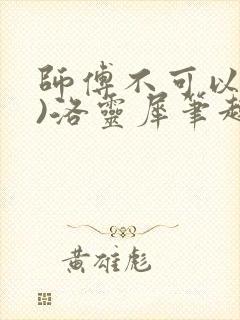 師傅不可以
)洛靈犀筆趣
黃雄彪